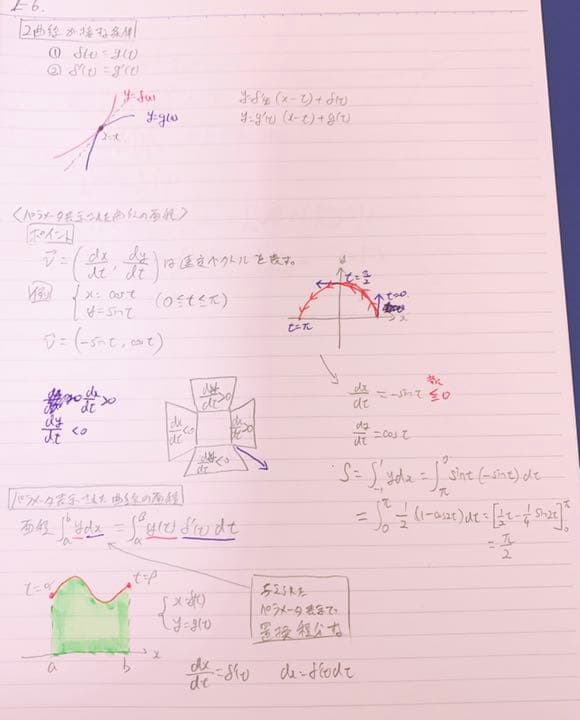 I-6.
2曲線が接する条件
① f(t) = g(t)
② f'(t) = g'(t)
y=f(x)
y=g(x)
x=t
y=f'(t)(x-t)+f(t)
y=g'(t)(x-t)+g(t)
〈パラメータ表示された曲線の面積〉
ポイント
v⃗ = (dx/dt, dy/dt) は速度ベクトルを表す。
例 { x = cost
y = sint (0≦t≦π)
v⃗ = (-sint, cost)
t=π/2
t=0
t=π
x
dx/dt>0
dy/dt<0
dy/dt>0
dx/dt<0
dx/dt>0
dy/dt<0
dx/dt = -sint ≦0
dy/dt = cost
S = ∫_{-1}^{1} ydx = ∫_{π}^{0} sint(-sint)dt
= ∫_{0}^{π} 1/2 (1-cos2t)dt = [1/2 t - 1/4 sin2t]_{0}^{π}
= π/2
パラメータ表示された曲線の面積
面積 ∫_{a}^{b} ydx = ∫_{α}^{β} y(t) f'(t) dt
t=α
t=β
a
b
x
{ x=f(t)
y=g(t)
与えられた
パラメータ表示で、
置換積分する
dx/dt = f'(t) dx = f'(t)dt